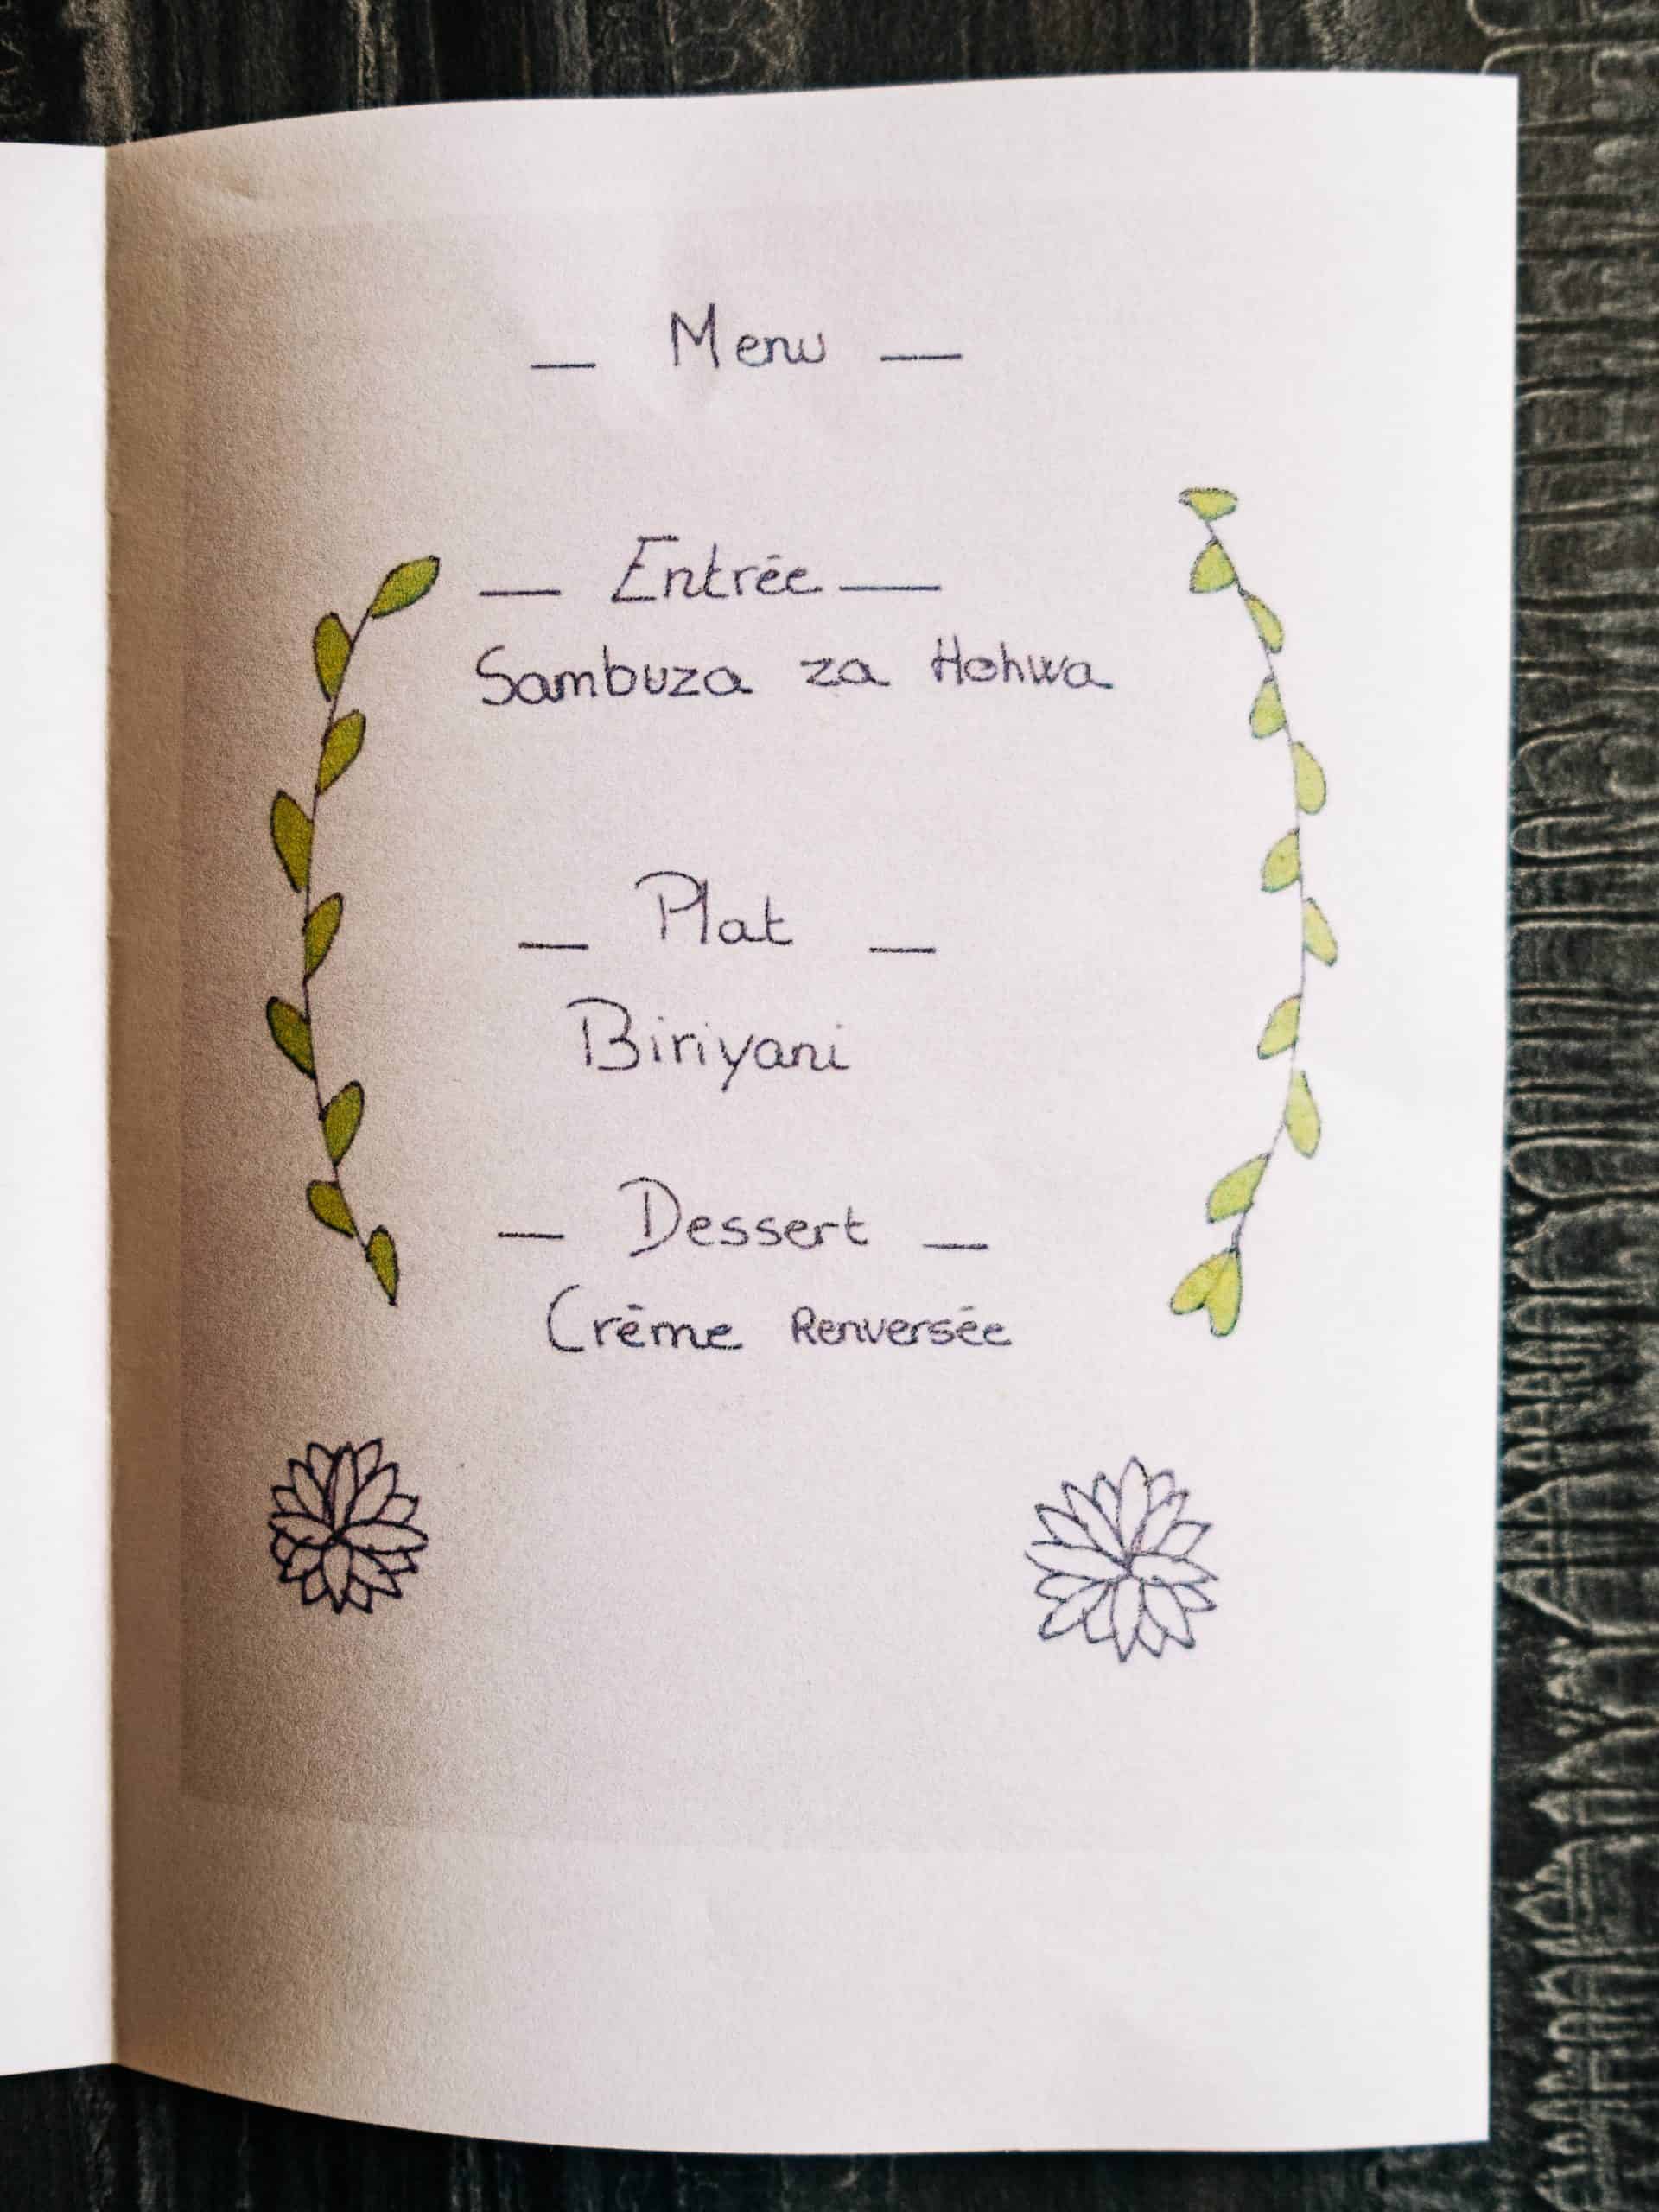 — Menu —
— Entrée —
Sambuza za Hohwa
— Plat —
Biriyani
— Dessert —
Crème Renversée